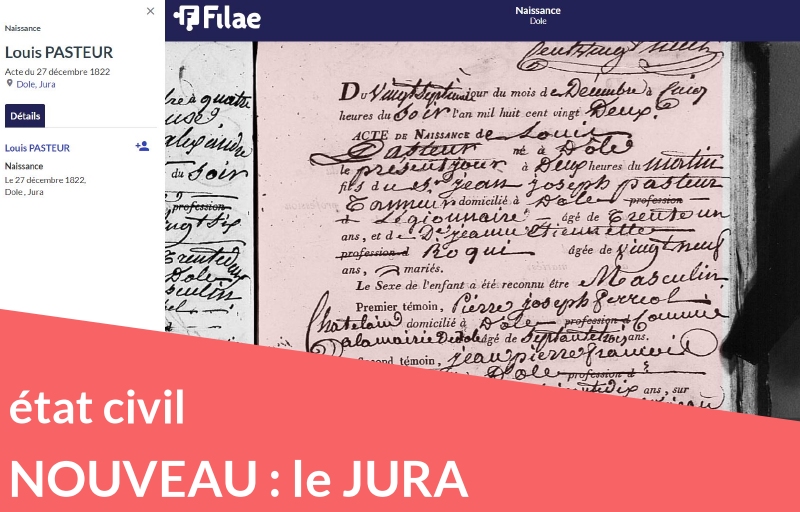 Naissance
Louis PASTEUR
Acte du 27 décembre 1822
Dole, Jura
Détails
Louis PASTEUR
Naissance
Le 27 décembre 1822,
Dole, Jura
Filae
Naissance
Dole
à quatre
alexandre
du Soir
profession
vingt six
Trente
Dole
Du Vingt Septième jour du mois de Décembre à Cinq
heures du Soir l'an mil huit cent vingt Deux.
ACTE DE NAISSANCE de Louis
Pasteur né à Dole
le présent jour à Deux heures du matin
fils du Sr. jean joseph pasteur
Tanneur domicilié à Dole profession
Légionnaire âgé de Trente un
ans, et de De. jeanne Etiennette
profession d Roqui âgée de vingt neuf
ans, mariés.
Le Sexe de l'enfant a été reconnu être Masculin.
Premier témoin, Pierre joseph
Chatelain domicilié à Dole profession d
a la mairie de dole âgé de Septante ans.
Second témoin, jean pierre francois
Dole profession d
dix ans, sur
état civil
NOUVEAU : le JURA